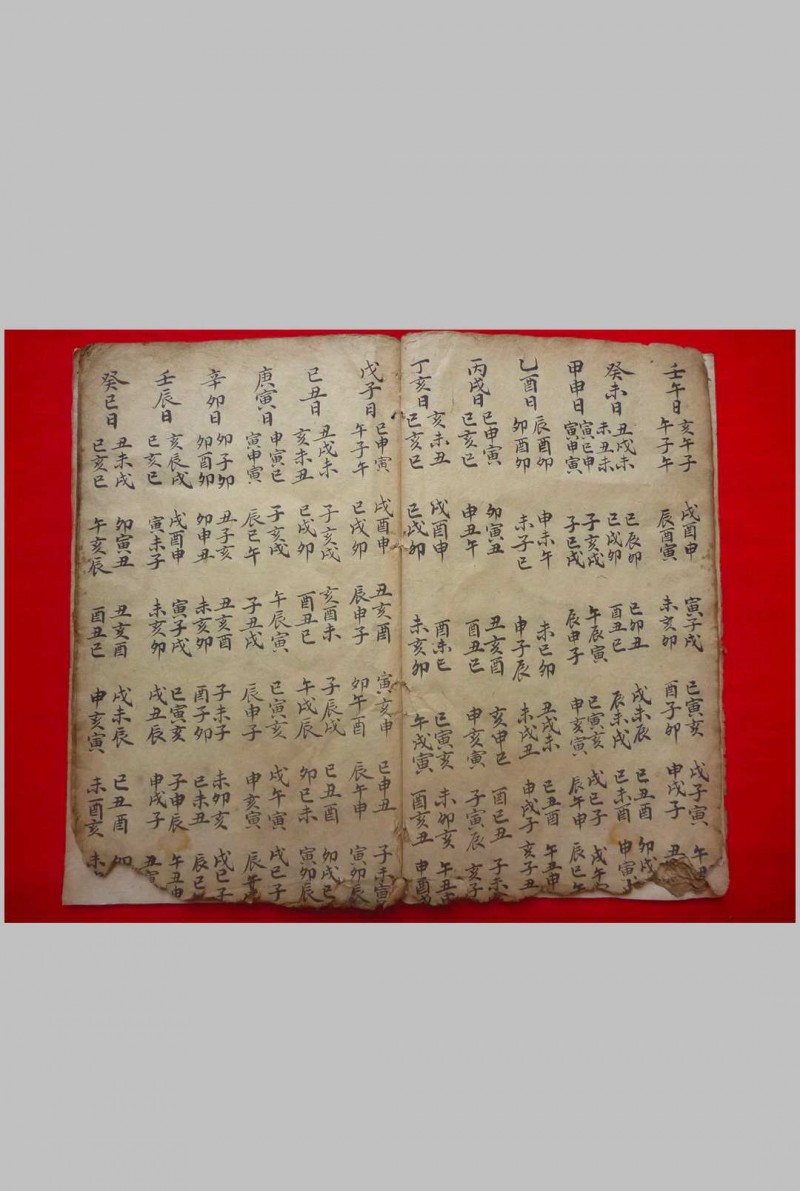 壬午日
亥午子 戌酉申 寅子戌 巳寅亥 戌子寅 午丑
午子午 辰酉寅 未亥卯 酉子卯 申戌子 丑
癸未日
丑戌未 巳辰卯 巳卯丑 戌未辰 巳丑酉 卯戌
未丑未 巳戌卯 酉丑巳 辰未戌 巳未酉 申寅
甲申日
寅巳申 子亥戌 午辰寅 巳寅亥 戌巳子 戌午
寅申寅 子巳戌 辰申子 申亥寅 辰午申 辰巳午
乙酉日
辰酉卯 申未午 未巳卯 丑戌未 巳丑酉 午丑申
卯酉卯 未子巳 申子辰 未戌丑 申戌子 亥子丑
丙戌日
巳申寅 卯寅丑 丑亥酉 亥申巳 酉巳丑 子未
巳亥巳 申丑午 酉丑巳 申亥寅 子寅辰 亥子
丁亥日
亥未丑 戌酉申 酉未巳 巳寅亥 未卯亥 午丑申
巳亥巳 巳戌卯 未亥卯 午戌寅 酉亥丑 申酉戌
戊子日
巳申寅 戌酉申 丑亥酉 寅亥申 巳申丑 子未寅
午子午 巳戌卯 辰申子 卯午酉 辰午申 寅卯辰
巳丑日
丑戌未 子亥戌 亥酉未 子辰戌 巳丑酉 卯戌巳
亥未丑 巳戌卯 酉丑巳 午戌辰 卯巳未 寅卯辰
庚寅日
申寅巳 子亥戌 午辰寅 巳寅亥 戌午寅 戌巳子
寅申寅 辰巳午 子丑戌 辰申子 申亥寅 辰午
辛卯日
卯子卯 丑子亥 丑亥酉 子未子 未卯亥 戌巳子
卯酉卯 卯申丑 未亥卯 酉子卯 巳未丑 辰巳
壬辰日
亥辰戌 戌酉申 寅子戌 巳寅亥 子申辰 午丑申
巳亥巳 寅未子 未亥卯 戌丑辰 申戌子 丑寅
癸巳日
丑未戌 卯寅丑 丑亥酉 戌未辰 巳丑酉 卯
巳亥巳 午亥辰 酉丑巳 申亥寅 未酉亥 未